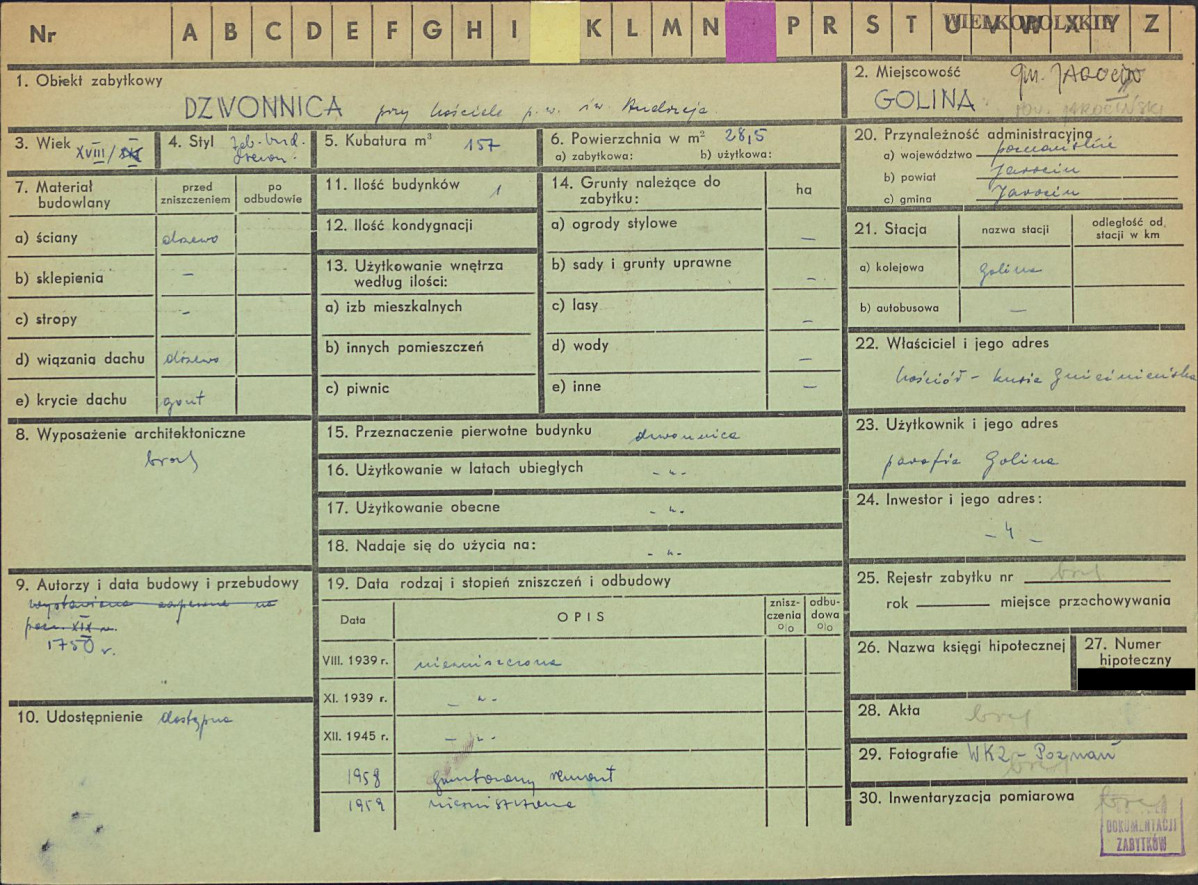 Nr A B C D E F G H I K L M N P R S T U V W X Y Z
WIELKOPOLSKIE
1. Obiekt zabytkowy
DZWONNICA przy kościele p.w. św. Andrzeja.
2. Miejscowość gm. JAROCIN
GOLINA pow. JAROCIŃSKI
3. Wiek XVIII/XIX
4. Styl
drewn.
5. Kubatura m³ 157
6. Powierzchnia w m² 28,5
a) zabytkowa: b) użytkowa:
20. Przynależność administracyjna
a) województwo poznańskie
b) powiat Jarocin
c) gmina Jarocin
7. Materiał budowlany
przed zniszczeniem
po odbudowie
a) ściany drzewo
b) sklepienia –
c) stropy –
d) wiązania dachu drzewo
e) krycie dachu gont
11. Ilość budynków 1
12. Ilość kondygnacji
13. Użytkowanie wnętrza według ilości:
a) izb mieszkalnych
b) innych pomieszczeń
c) piwnic
14. Grunty należące do zabytku:
ha
a) ogrody stylowe –
b) sady i grunty uprawne –
c) lasy –
d) wody –
e) inne –
21. Stacja
nazwa stacji
odległość od stacji w km
a) kolejowa Golina
b) autobusowa –
22. Właściciel i jego adres
kościół – kuria Gnieźnieńska
8. Wyposażenie architektoniczne
brak
15. Przeznaczenie pierwotne budynku dzwonnica
16. Użytkowanie w latach ubiegłych - „ -
17. Użytkowanie obecne - „ -
18. Nadaje się do użycia na: - „ -
23. Użytkownik i jego adres
parafia Golina
24. Inwestor i jego adres:
- „ -
9. Autorzy i data budowy i przebudowy
wystawiona zapewne na
pocz. XIX w.
1750 r.
19. Data rodzaj i stopień zniszczeń i odbudowy
Data
OPIS
zniszczenia %
odbudowa %
VIII. 1939 r. niezniszczona
XI. 1939 r. - „ -
XII. 1945 r. - „ -
1958 gruntowny remont
1959 niezniszczona
25. Rejestr zabytku nr brak
rok miejsce przechowywania
26. Nazwa księgi hipotecznej
27. Numer hipoteczny
10. Udostępnienie dostępna
28. Akta brak
29. Fotografie WKZ – Poznań
brak
30. Inwentaryzacja pomiarowa brak
DOKUMENTACJI
ZABYTKÓW